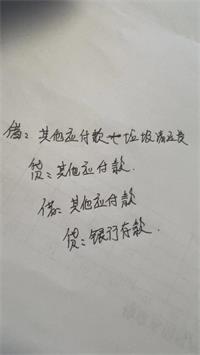 借：其他应付款—垃圾清运费
贷：其他应付款.
借：其他应付款
贷：银行存款.